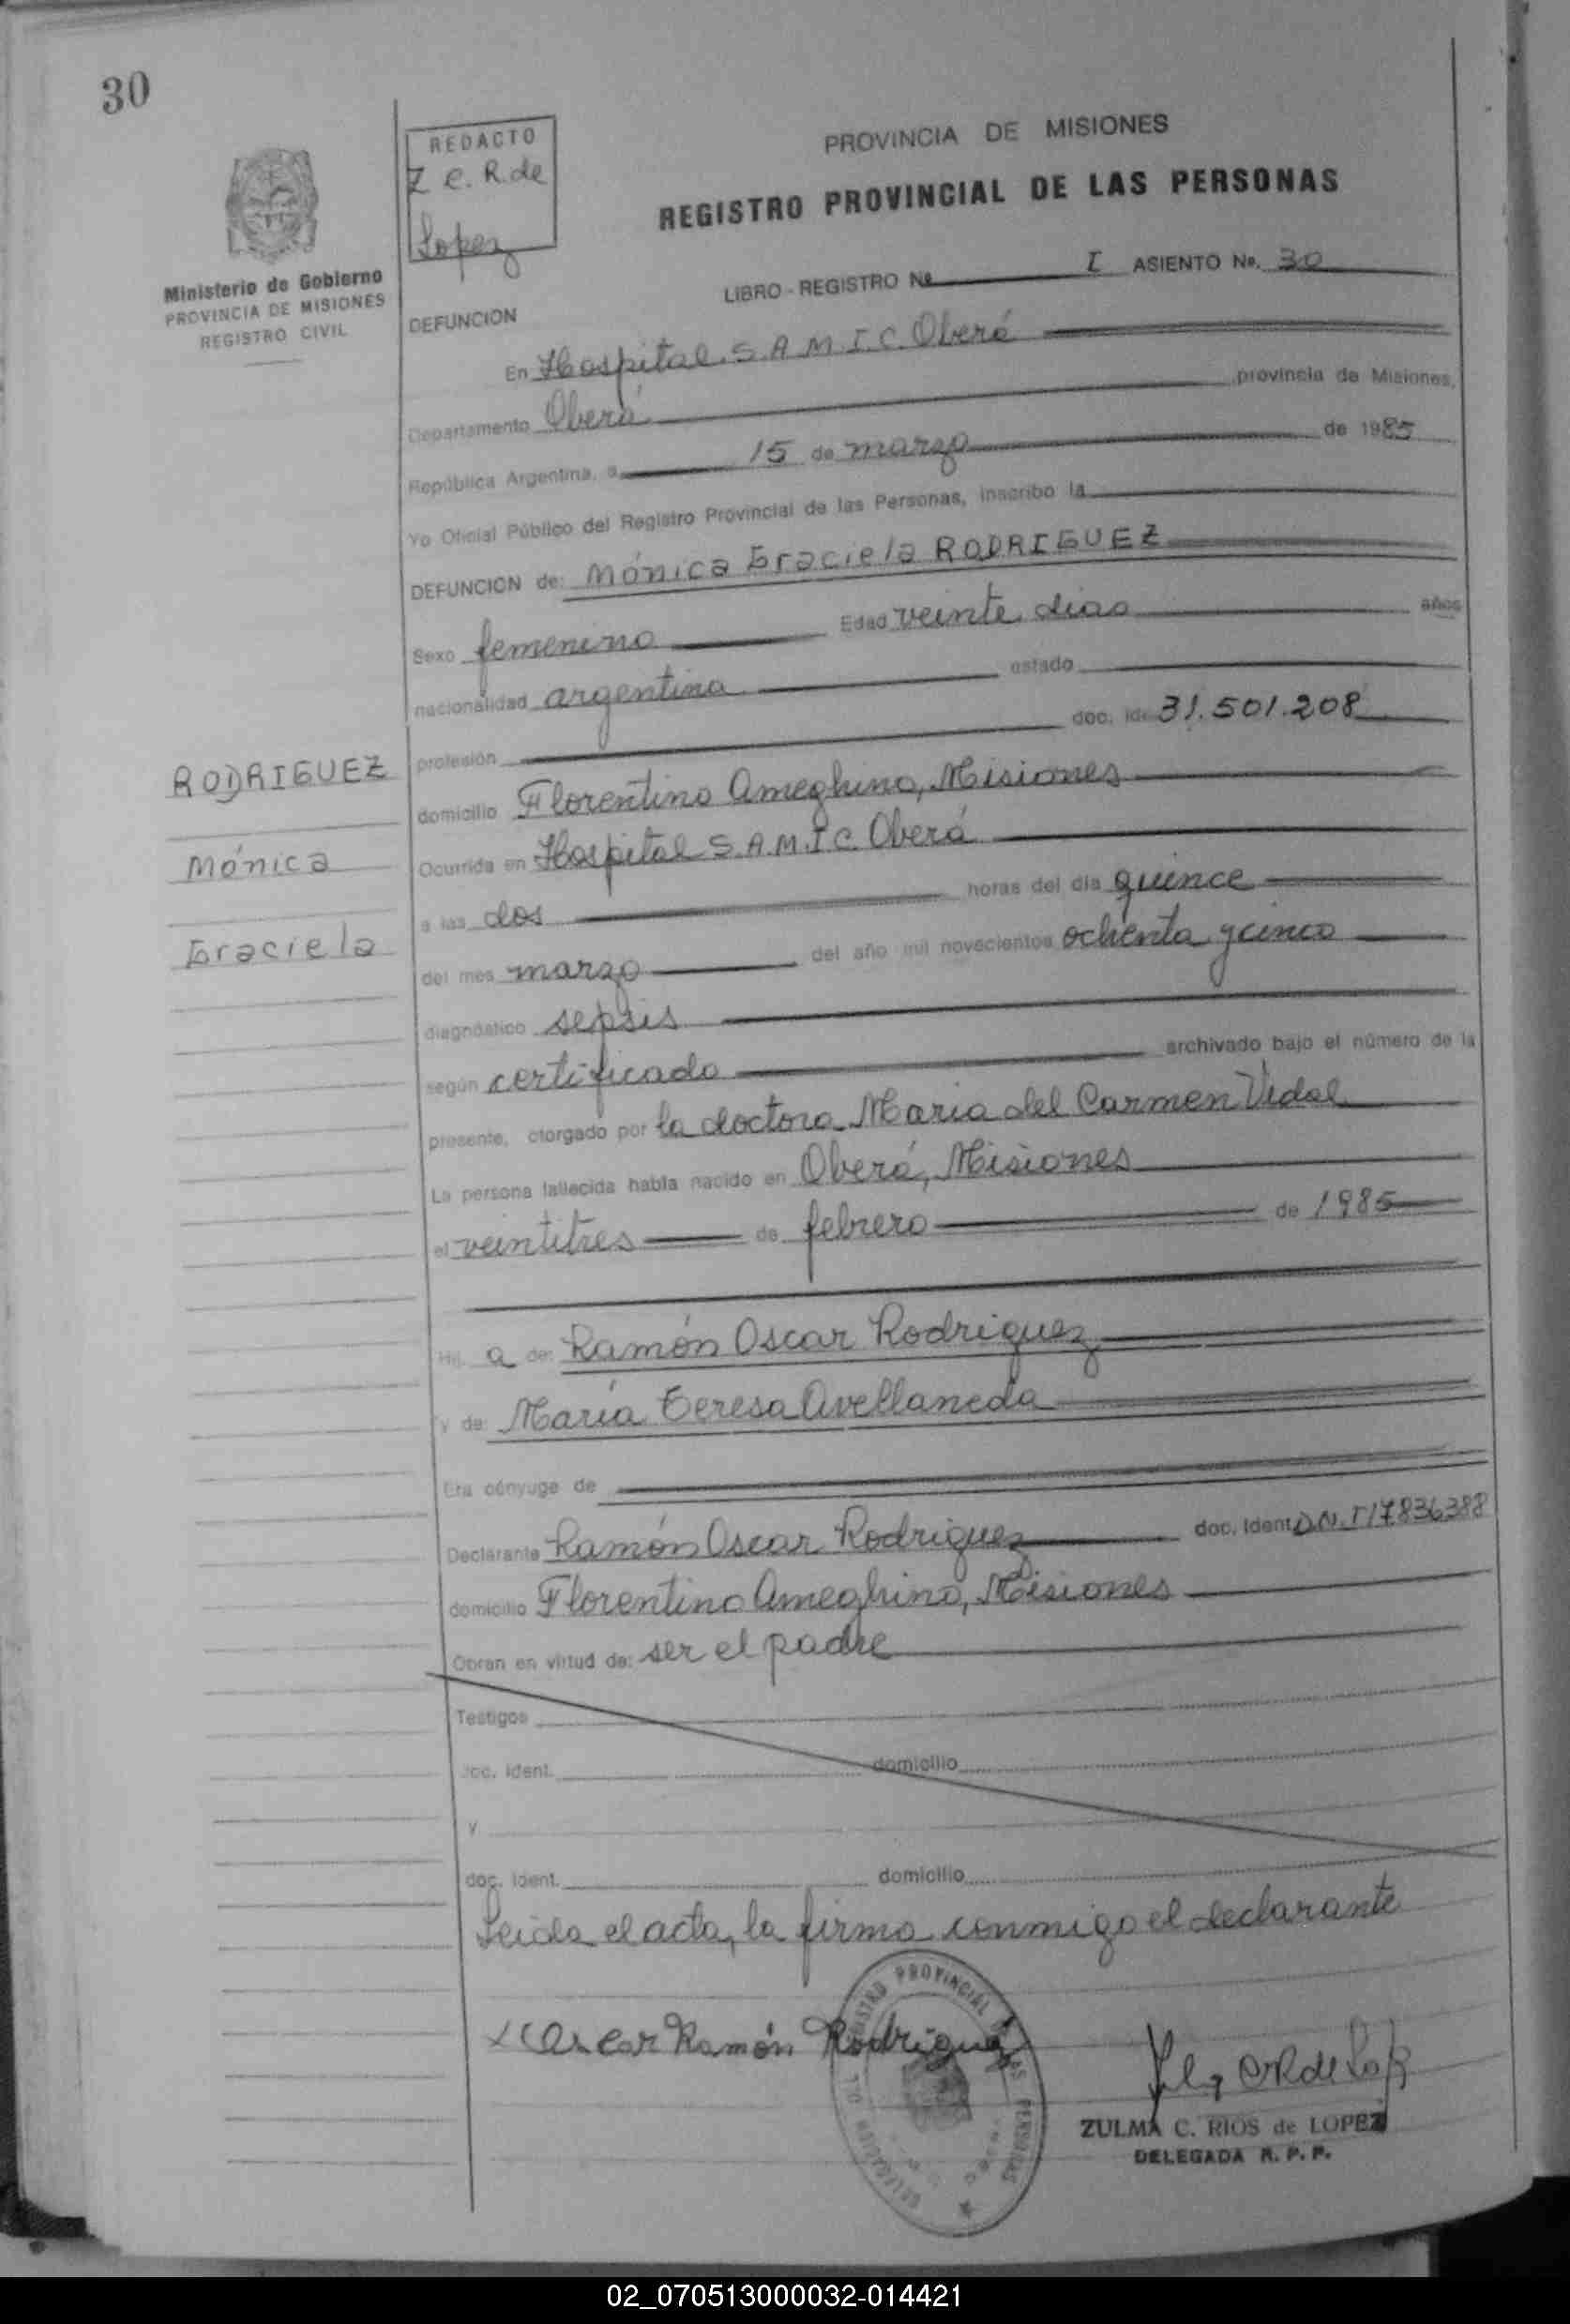 30
REDACTO
Z C. R. de
Lopez
PROVINCIA DE MISIONES
REGISTRO PROVINCIAL DE LAS PERSONAS
Ministerio de Gobierno
PROVINCIA DE MISIONES
REGISTRO CIVIL
LIBRO - REGISTRO Nº I ASIENTO Nº. 30
DEFUNCION
En Hospital S.A.M.I.C. Oberá
Departamento Oberá provincia de Misiones,
República Argentina, a 15 de marzo de 1985
Yo Oficial Público del Registro Provincial de las Personas, inscribo la
DEFUNCION de: Mónica Graciela RODRIGUEZ
Sexo femenino Edad veinte dias años
nacionalidad argentina estado
profesión doc. id. 31.501.208
RODRIGUEZ
Mónica
Graciela
domicilio Florentino Ameghino, Misiones
Ocurrida en Hospital S.A.M.I.C. Oberá
a las dos horas del día quince
del mes marzo del año mil novecientos ochenta y cinco
diagnóstico sepsis
según certificado archivado bajo el número de la
presente, otorgado por la doctora Maria del Carmen Vidal
La persona fallecida había nacido en Oberá, Misiones
el veintitres de febrero de 1985
Hij a de: Ramón Oscar Rodriguez
y de: María Teresa Avellaneda
Era cónyuge de
Declarante Ramón Oscar Rodriguez doc. Ident. D.N.I 17836388
domicilio Florentino Ameghino, Misiones
Obran en virtud de: ser el padre
Testigos
doc. Ident. domicilio
y
doc. Ident. domicilio
Leida el acta, la firma conmigo el declarante
Oscar Ramón Rodriguez
REGISTRO PROVINCIAL DE LAS PERSONAS
DELEGACION
ZULMA C. RIOS de LOPEZ
DELEGADA R. P. P.
02_070513000032-014421